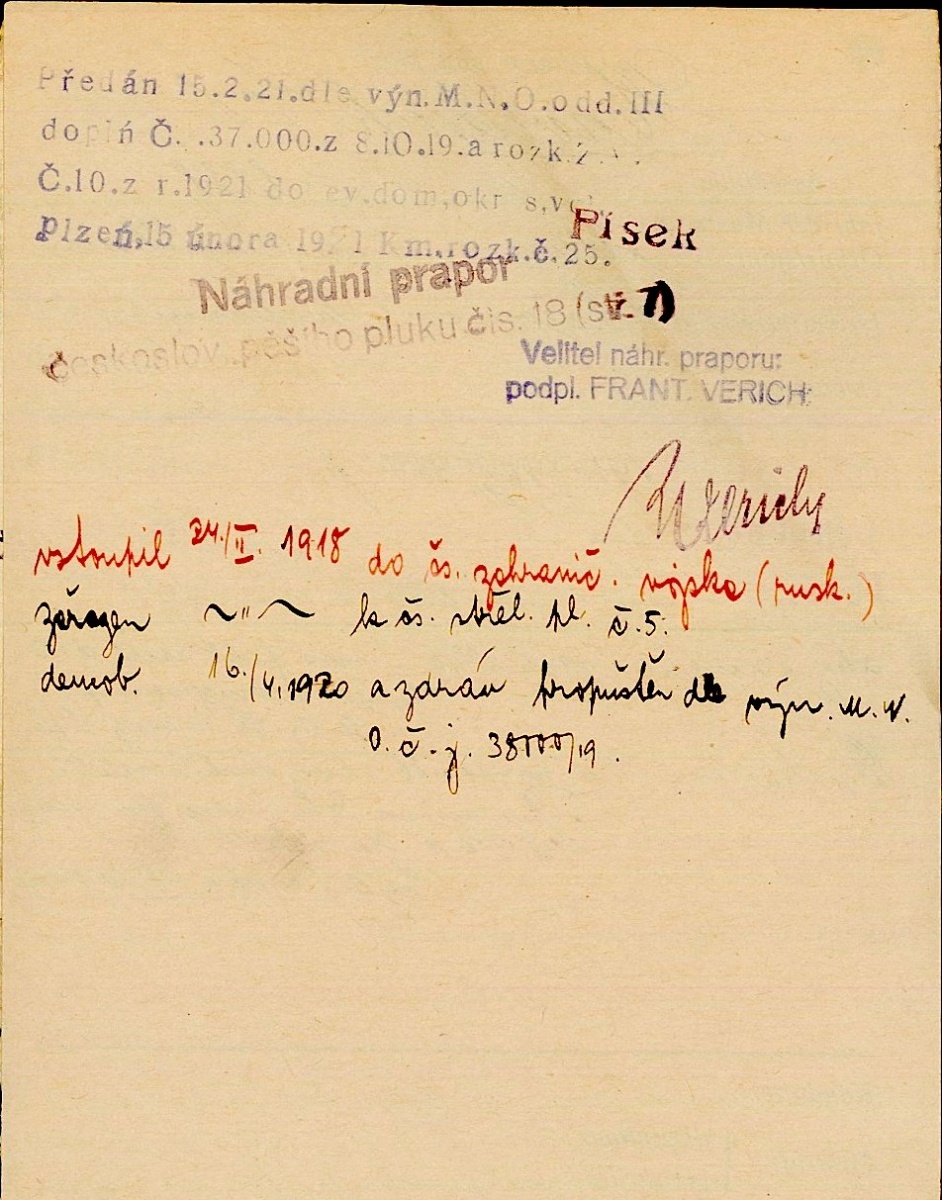 Předán 15.2.21.dle výn.M.N.O.odd.III
doplň Č. .37.000.z 8.10.19.a rozk.
Č.10.z r.1921 do ev.dom,okr
Písek
Plzeň,15 února 1921 Km.rozk.č.25.
Náhradní prapor
českoslov. pěšího pluku čís. 18 (str. 7)
Velitel náhr. praporu:
podpl. FRANT. VERICH:
Verich
vstoupil 24./II. 1918 do čs. zahranič. vojska (rusk.)
zařazen ~"~ k čs. střel. pl. č. 5.
demob. 16./4.1920 a zdráv propuštěn dle výn. M. N.
O. č. j. 38000/19.